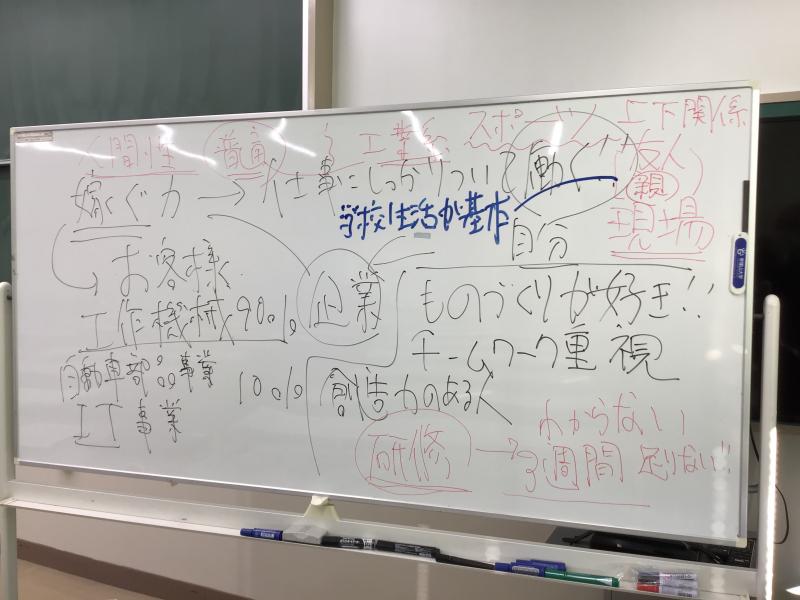 人間性 普通 工業系 スポーツ 上下関係
稼ぐ力 → 仕事にしっかりついて働く 友人
(親)
学校生活が基本
現場
自分
お客様
工作機械90% 企業 ものづくりが好き!!
チームワーク重視
自動車部品事業 10% 創造力のある人
工丁事業
わからない
研修 → 3週間 足りない!!